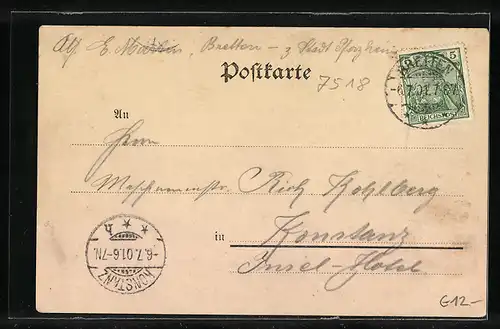 E. Martin, Bretten – z. Stadt Pforzheim
Postkarte
7518
5
REICHSPOST
BRETTEN
-6.7.01.7-8N.
An
Herrn
Rich Kohlberg
in Konstanz
Insel-Hotel
-6.7.01.6-7N.
KONSTANZ
G12-